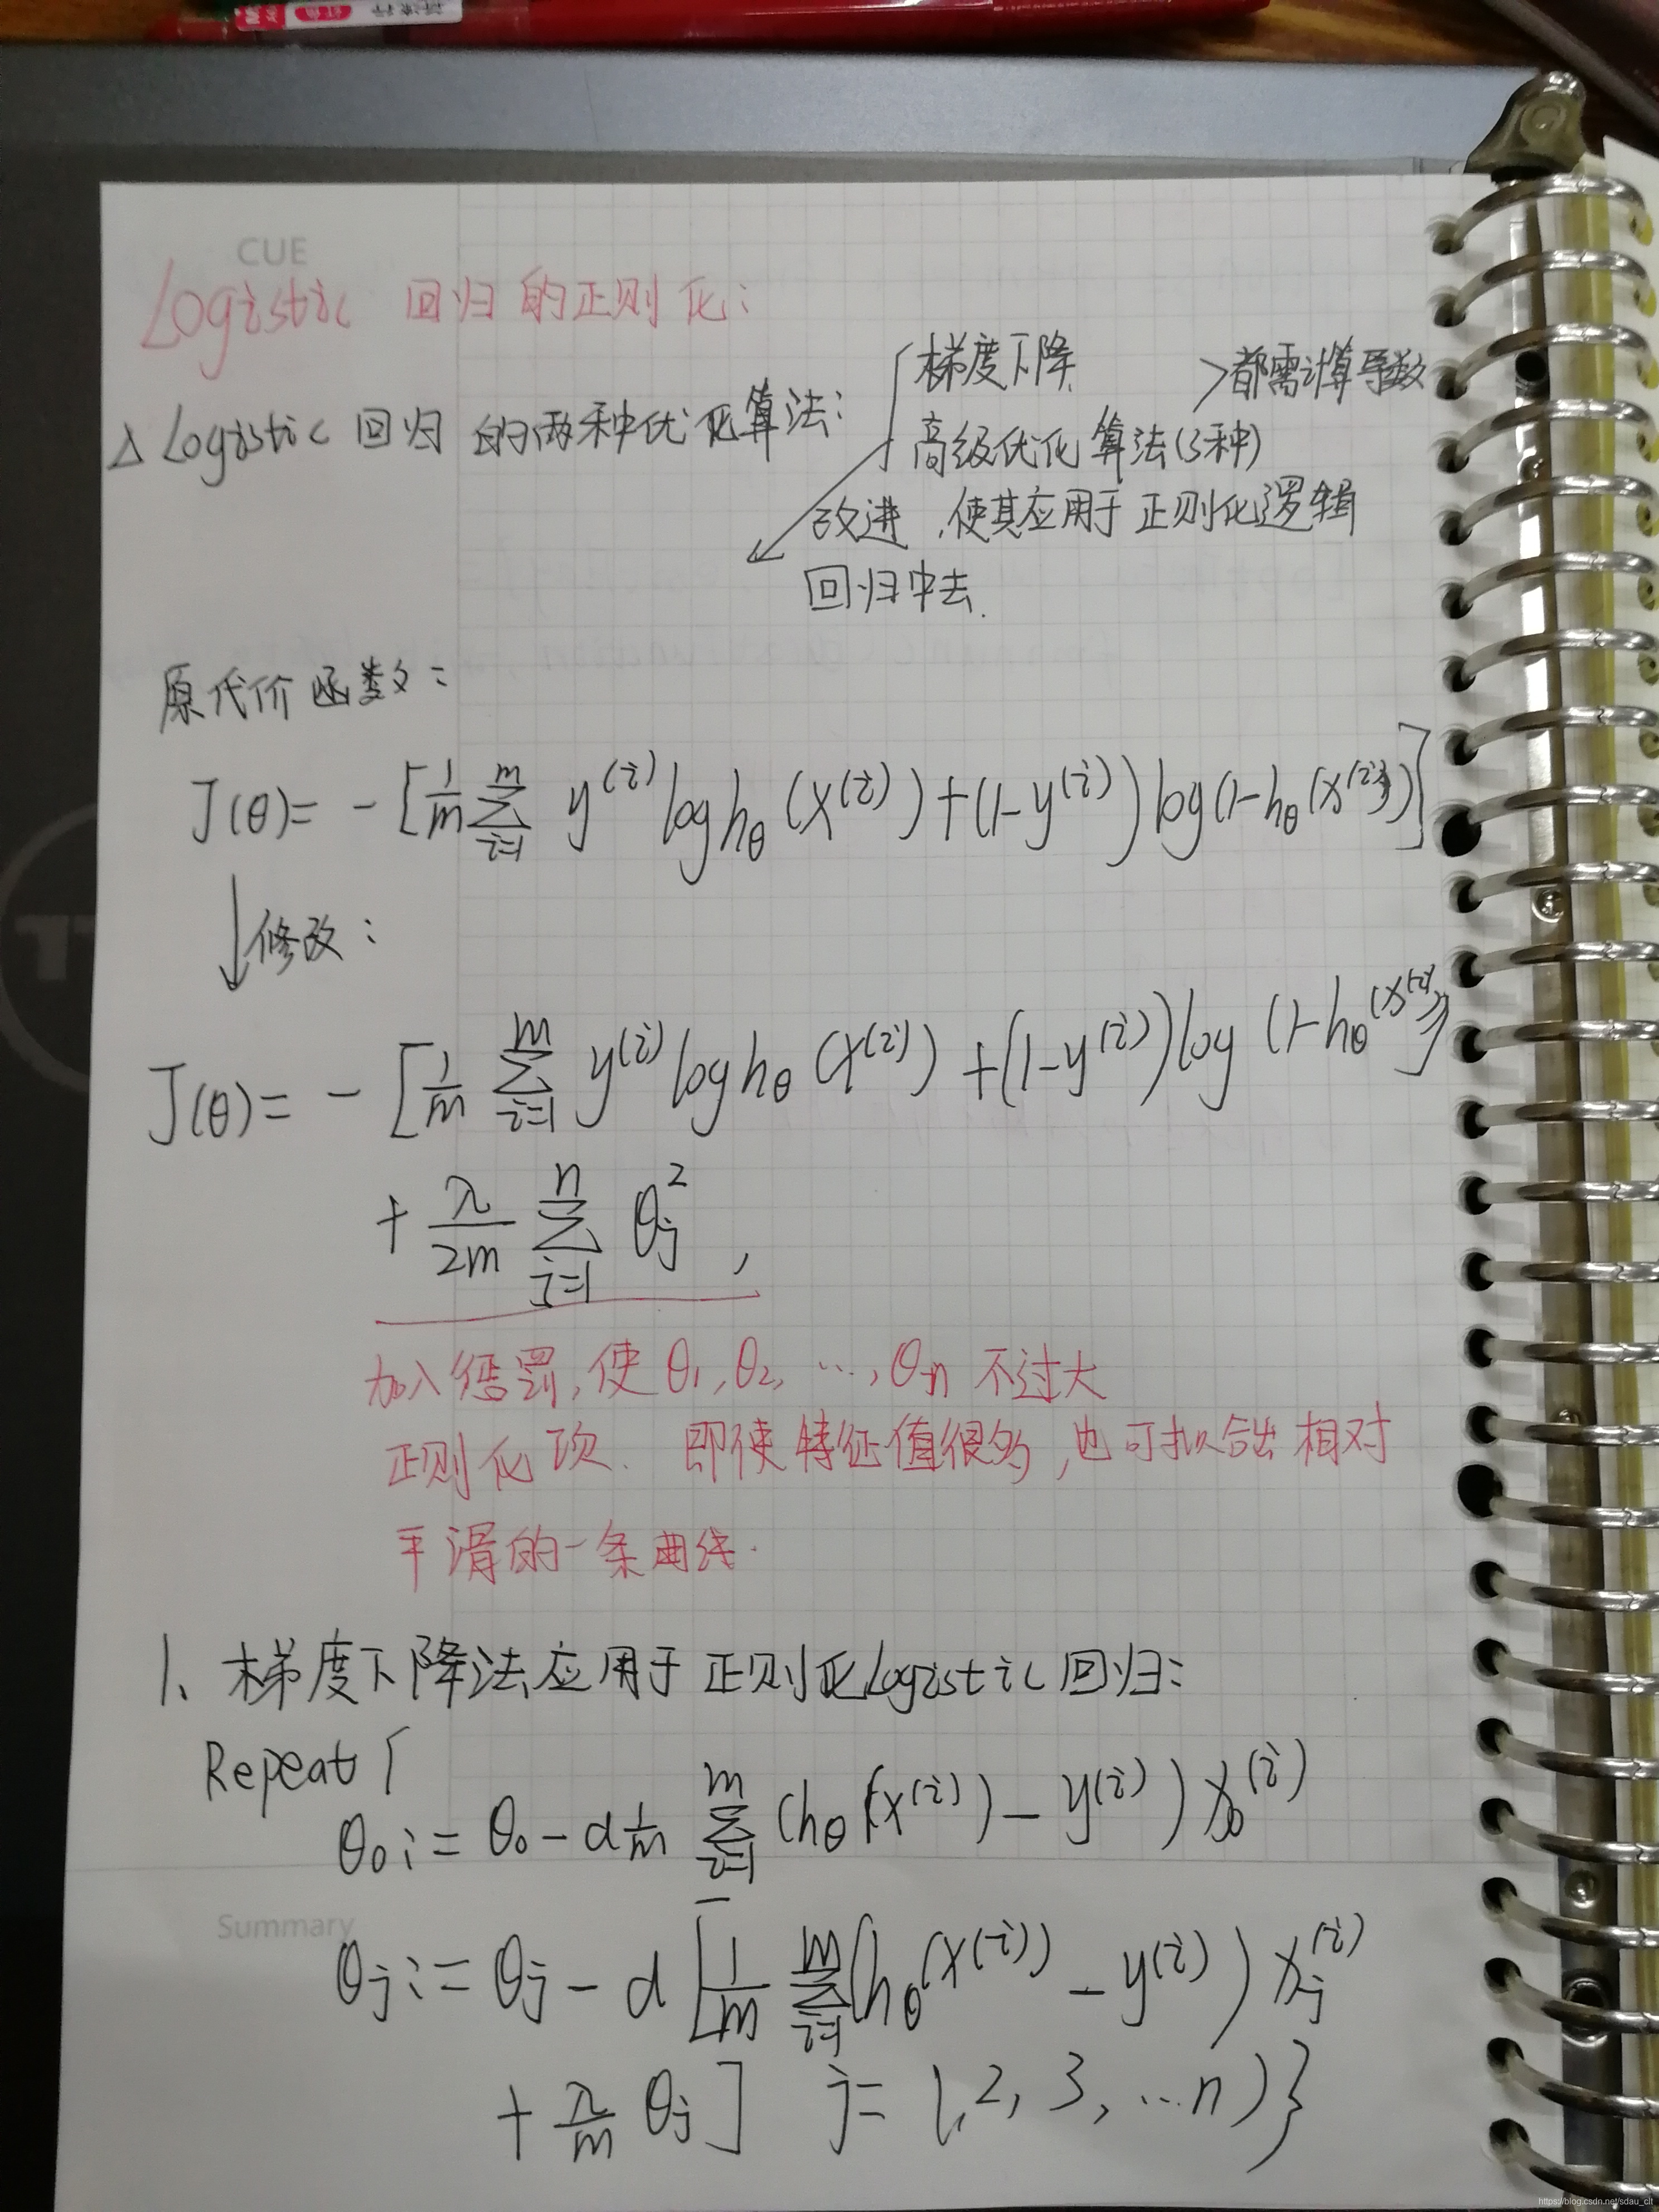 CUE
Logistic 回归的正则化:
△ Logistic 回归的两种优化算法:
梯度下降 >都需计算导数
高级优化算法(3种)
改进,使其应用于正则化逻辑
回归中去.
原代价函数:
J(θ)= -[1/m Σ_{i=1}^{m} y^{(i)} log h_θ(x^{(i)})+(1-y^{(i)})log(1-h_θ(x^{(i)}))]
↓修改:
J(θ)= -[1/m Σ_{i=1}^{m} y^{(i)} log h_θ(x^{(i)})+(1-y^{(i)})log(1-h_θ(x^{(i)}))
+ λ/2m Σ_{j=1}^{n} θ_j^2,
加入惩罚,使θ₁,θ₂,…,θn不过大
正则化项. 即使特征值很多,也可拟合出相对
平滑的一条曲线.
1、梯度下降法应用于正则化Logistic回归:
Repeat {
θ₀:= θ₀-α 1/m Σ_{i=1}^{m} (h_θ(x^{(i)})-y^{(i)})x₀^{(i)}
Summary
θ_j:= θ_j-α[1/m Σ_{i=1}^{m} (h_θ(x^{(i)})-y^{(i)})x_j^{(i)}
+ λ/m θ_j] j= 1,2,3,…n)}
https://blog.csdn.net/sdau_clt